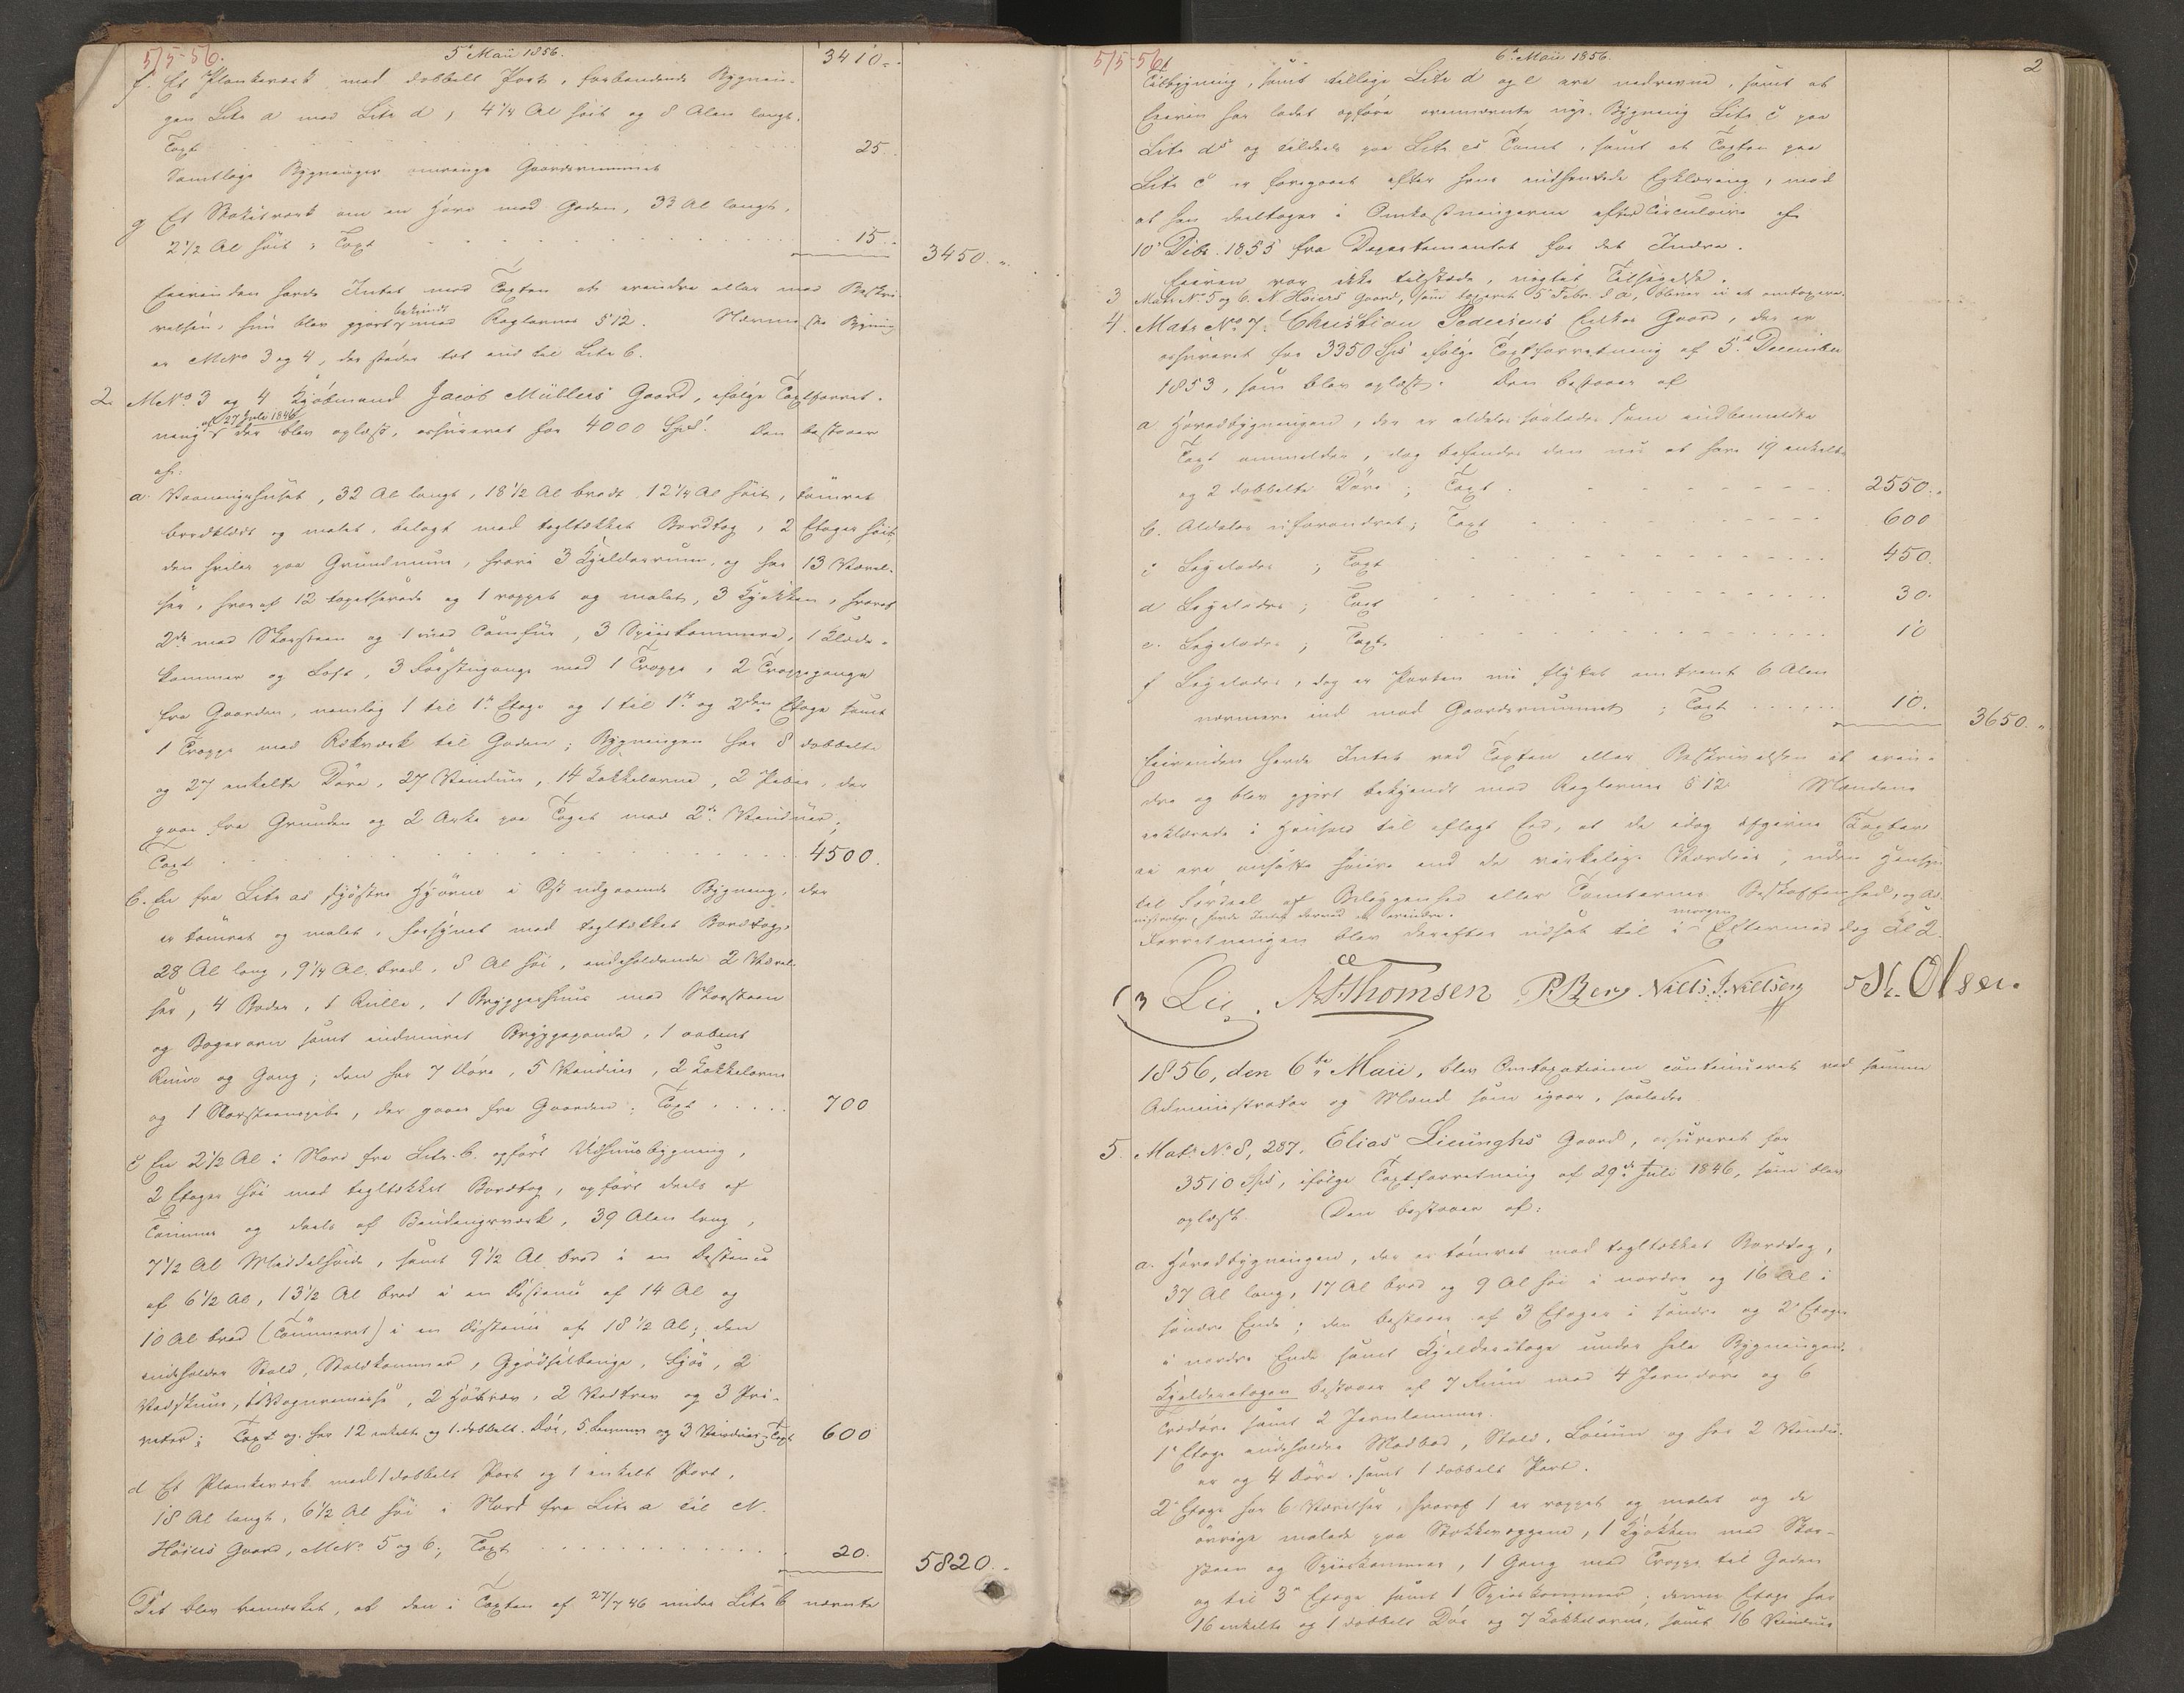 5/5-56. 5 Maii 1856. 3410.
f. Et Plankeværk med dobbelt Port, forbindende Bygnin-
gen Litr a med Litr d, 4 1/4 Al höit og 8 Alen langt.
Taxt 25
Samtlige Bygninger omringe Gaardsrummet
g Et Stakitværk om en Have mod Gaden, 33 Al langt,
2 1/2 Al höit; Taxt 15. 3450.
Eierinden havde Intet mod Taxten at erindre eller mod Beskri-
velsen, hun blev gjort bekjendt med Reglernes § 12. Nærmeste Bygning
er MNo 3 og 4, der støder tæt ind til Litr b.
2. MNo. 3 og 4 Kjøbmand Jacob Müllers Gaard, ifølge Taxtforret-
ning af 27 Juli 1846 der blev oplæst, assureret for 4000 Spd. Den bestaaer
af:
a. Vaaningshuset, 32 Al langt, 18 1/2 Al bredt, 12 1/4 Al höit, tömret
bordklædt og malet, belagt med tegltækket Bordtag, 2 Etager höit,
den hviler paa Grundmuur, hvori 3 Kjelderrum, og har 13 Værel-
ser, hvoraf 12 tapetserede og 1 rappet og malet, 3 Kjøkken, hvoraf
2de med Skorsteen og 1 med Comfur, 3 Spiiskammere, 1 Klæde-
kammer og Loft, 3 Forstugange med 1 Trappe, 2 Trappegange
fra Gaarden, nemlig 1 til 1ste Etage og 1 til 1ste og 2den Etage samt
1 Trappe med Rækværk til Gaden; Bygningen har 8 dobbelte
og 27 enkelte Døre, 27 Vinduer, 14 Kakkelovne, 2 Piber, der
gaae fra Grunden og 2 Arke paa Taget med 2de Vinduer;
Taxt 4500.
b. En fra Litr as Hjørne i Øst udgaaende Bygning, der
er tömret og malet, forsynet med tegltækket Bordtag,
28 Al lang, 9 1/4 Al. bred, 8 Al höi, indeholdende 2 Værel-
ser, 4 Boder, 1 Rulle, 1 Bryggerhuus med Skorsteen
og Bagerovn samt indmuret Bryggepande, 1 aabent
Ruum og Gang; den har 7 Döre, 5 Vinduer, 2 Kakkelovne
og 1 Skorsteenspibe, der gaaer fra Gaarden; Taxt 700
c En 2 1/2 Al i Nord fra Litr b. opført Udhuusbygning,
2 Etager höi med tegltækket Bordtag, opført deels af
Tömmer og deels af Bindingsværk, 39 Alen lang,
7 1/2 Al Middelhøide, samt 9 1/2 Al bred i en Distance
af 6 1/2 Al, 13 1/2 Al bred i en Distance af 14 Al og
10 Al bred (Tömmeret) i en Distance af 18 1/2 Al; den
indeholder Stald, Staldkammer, Gjødselbinge, Fjøs, 2
Vedskuur, 1 Vognremisse, 2 Høtrev, 2 Vedtrev og 3 Pri-
veter; Taxt og har 12 enkelte og 1 dobbelt Dör, 5 Lemmer og 3 Vinduer; Taxt 600
d Et Plankeværk med 1 dobbelt Port og 1 enkelt Port,
18 Al langt, 6 1/2 Al höi i Nord fra Litr a til N.
Höiers Gaard, MNo 5 og 6; Taxt 20. 5820.
Det blev bemærket, at den i Taxten af 27/7 46 under Litr b nævnte
5/5-56 6 Maii 1856. 2
Tilbygning, samt tillige Litr d og e ere nedrevne, samt at
Eieren har ladet opføre ovennævnte nye Bygning Litr c paa
Litr ds og tildeels paa Litr es Tomt, samt at Taxten paa
Litr c er foregaaet efter hans indhentede Erklæring, mod
at han deeltager i Omkostningerne efter Circulaire af
10 Dcbr. 1855 fra Departementet for det Indre.
Eieren var ikke tilstede, uagtet Tilsigelse.
3 Matr No 5 og 6. N Höiers Gaard, som taxeret 5 Febr. d. A., bliver ei at omtaxere.
4. Matr No 7. Christian Pedersens Enkes Gaard, der er
assureret for 3350 Spd ifølge Taxtforretning af 5. December
1853, som blev oplæst. Den bestaaer af
a Hovedbygningen, der er aldeles saaledes som indbemeldte
Taxt ommelder, dog befandtes den nu at have 19 enkelte
og 2 dobbelte Döre; Taxt 2550.
b. Aldeles uforandret; Taxt 600
c Ligeledes; Taxt 450.
d Ligeledes; Taxt 30.
e. Ligeledes; Taxt. 10
f Ligeledes, dog er Porten nu flyttet omtrent 6 Alen
nærmere ind mod Gaardsrummet; Taxt 10. 3650.
Eierinden havde Intet ved Taxten eller Beskrivelsen at erin-
dre og blev gjort bekjendt med Reglernes § 12 Mændene
erklærede i Henhold til aflagt Eed, at de idag afgivne Taxter
ei ere ansatte høiere end de virkelige Værdier, uden Hensyn
til Fordeel af Beliggenhed eller Tomternes Beskaffenhed, og Ad-
ministrator havde Intet derved at erindre.
Forretningen blev derefter udsat til i morgen Eftermiddag Kl 2.
Lie. Thomsen P. Berg Niels J. Nielsen N. Olsen.
1856, den 6te Maii, blev Omtaxationen continueret ved samme
Administrator og Mænd som igaar, saaledes
5. Matr No 8, 287. Elias Lieunghs Gaard, assureret for
3510 Spd, ifølge Taxtforretning af 29de Juli 1846, som blev
oplæst. Den bestaaer af:
a. Hovedbygningen, der er tómret med tegltækket Bordtag,
37 Al lang, 17 Al bred og 9 Al höi i nordre og 16 Al i
søndre Ende; den bestaaer af 3 Etager i søndre og 2 Etager
i nordre Ende samt Kjelderetage under hele Bygningen.
Kjelderetagen bestaaer af 7 Rum med 4 Jerndøre og 6
Trædøre samt 2 Jernlemmer.
1 Etage indeholder Madbod, Stald, Locum og har 2 Vindu-
er og 4 Döre, samt 1 dobbelt Port.
2 Etage har 6 Værelser, hvoraf 1 er rappet og malet og de
øvrige malede paa Stokkevæggene, 1 Kjøkken med Skor-
steen og Spiiskammer, 1 Gang med Trappe til Gaden
og til 3 Etage samt 1 Spiiskammer; denne Etage har
16 enkelte og 1 dobbelt Dör og 7 Kakkelovne, samt 16 Vinduer